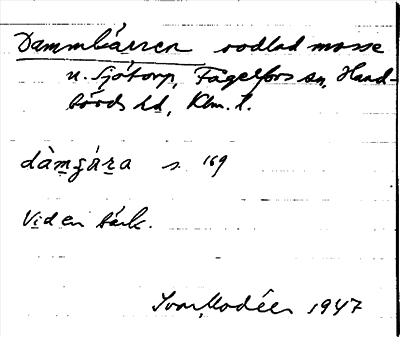 Dammkärren odlad mosse
u. Sjötorp, Fagelfors sn, Hand-
börds hd, Klm. l.
dàmɟára s. 169
Vid en bäck.
Ivar Modéer 1947